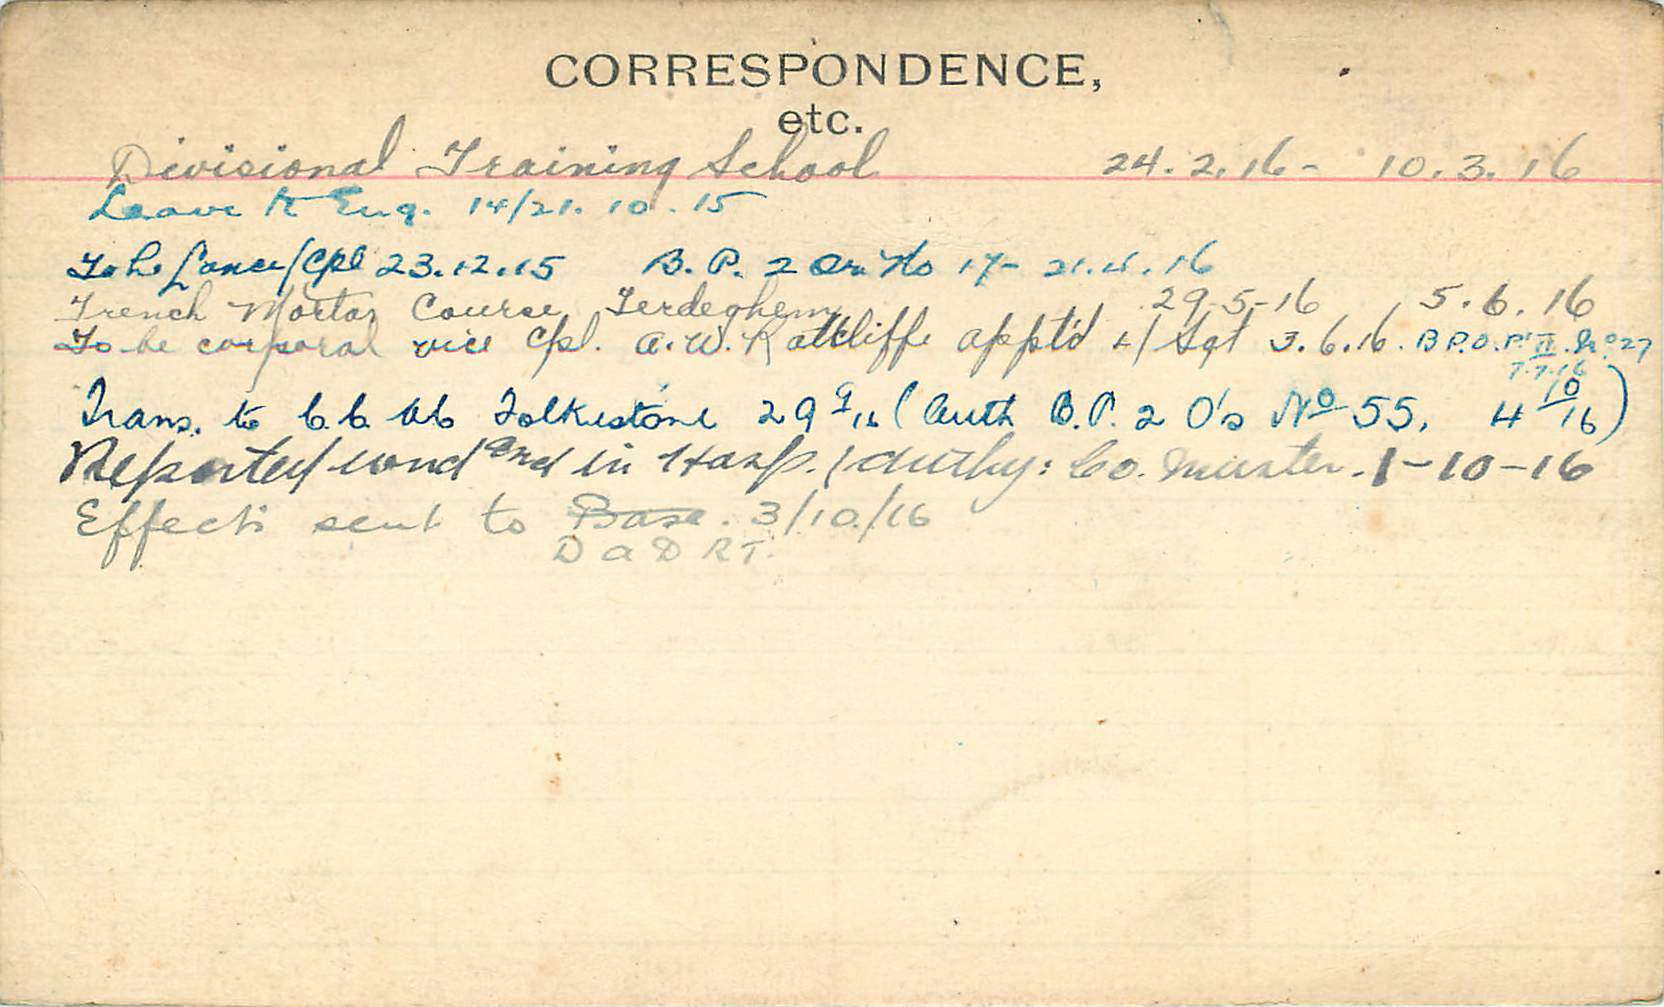 CORRESPONDENCE,
etc.
Divisional Training School 24.2.16 - 10.3.16
Leave to Eng. 14/21.10.15
To be Lance/Cpl 23.12.15 B.P. 2 Or. No 17 - 21.4.16
Trench Mortar Course Terdeghem 29-5-16 5.6.16
To be corporal vice Cpl. A.W. Ratcliffe appt'd Sgt 3.6.16. B.P.O. Pt II. No 27
7.7.16
Trans. to Folkestone 29 9/16 (Auth B.P. 2 O's No 55, 4 10/16)
Reported wnd and in Hosp. (Authy: Co. Muster. 1-10-16
Effects sent to Base. 3/10/16
D A D R T.